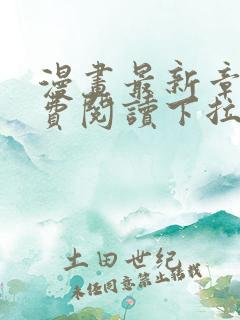 漫畫最新章
費閱讀下拉
土田世紀
未經同意禁止轉載